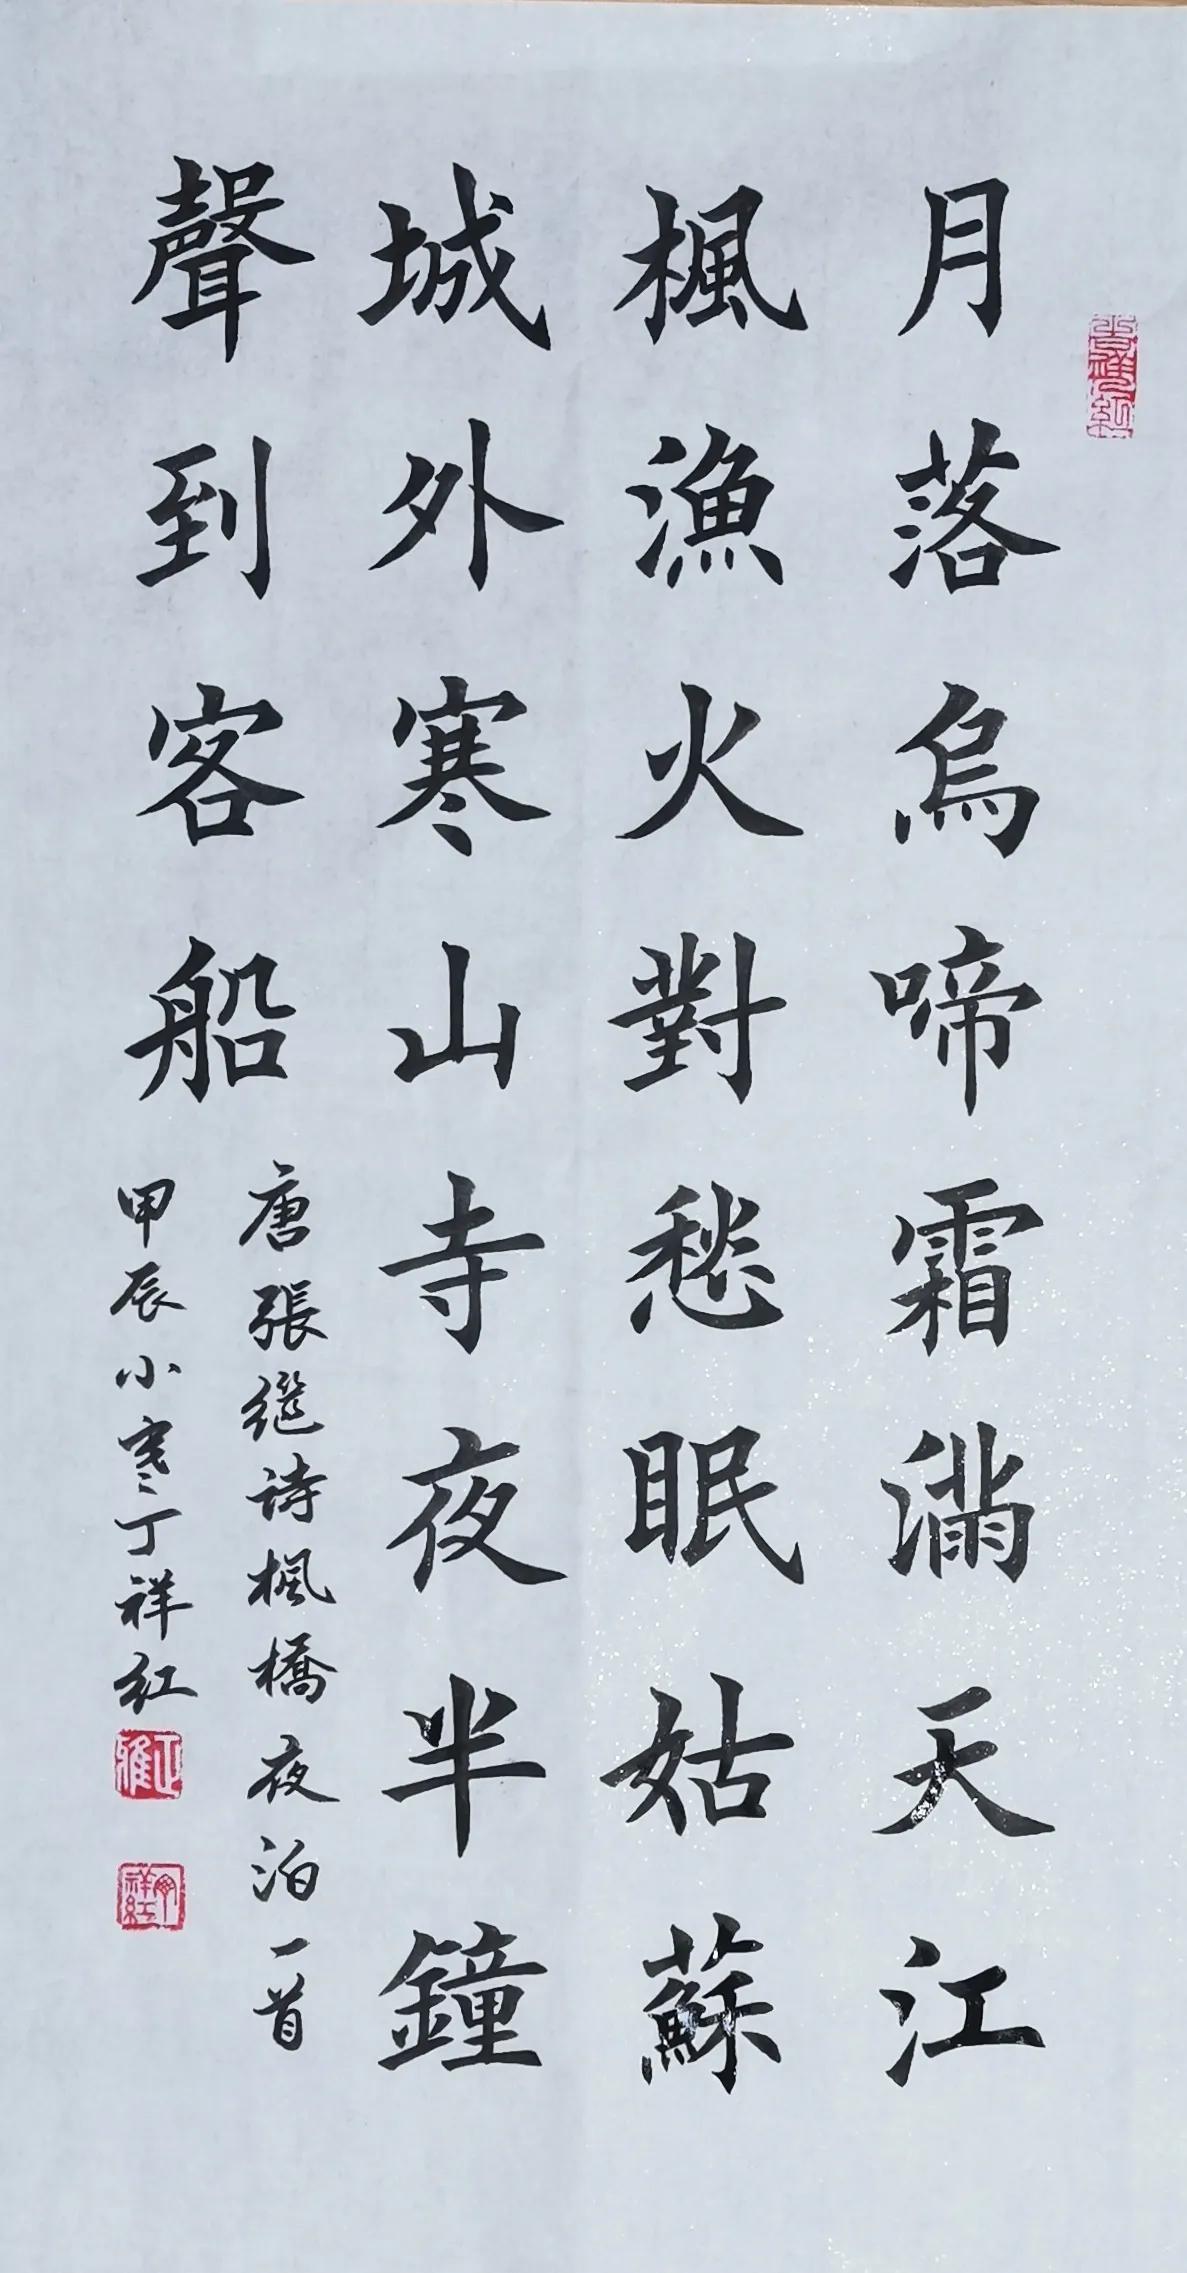 月落烏啼霜滿天江
楓漁火對愁眠姑蘇
城外寒山寺夜半鐘
聲到客船
唐張繼诗楓橋夜泊一首
甲辰小寒丁祥红
正雅